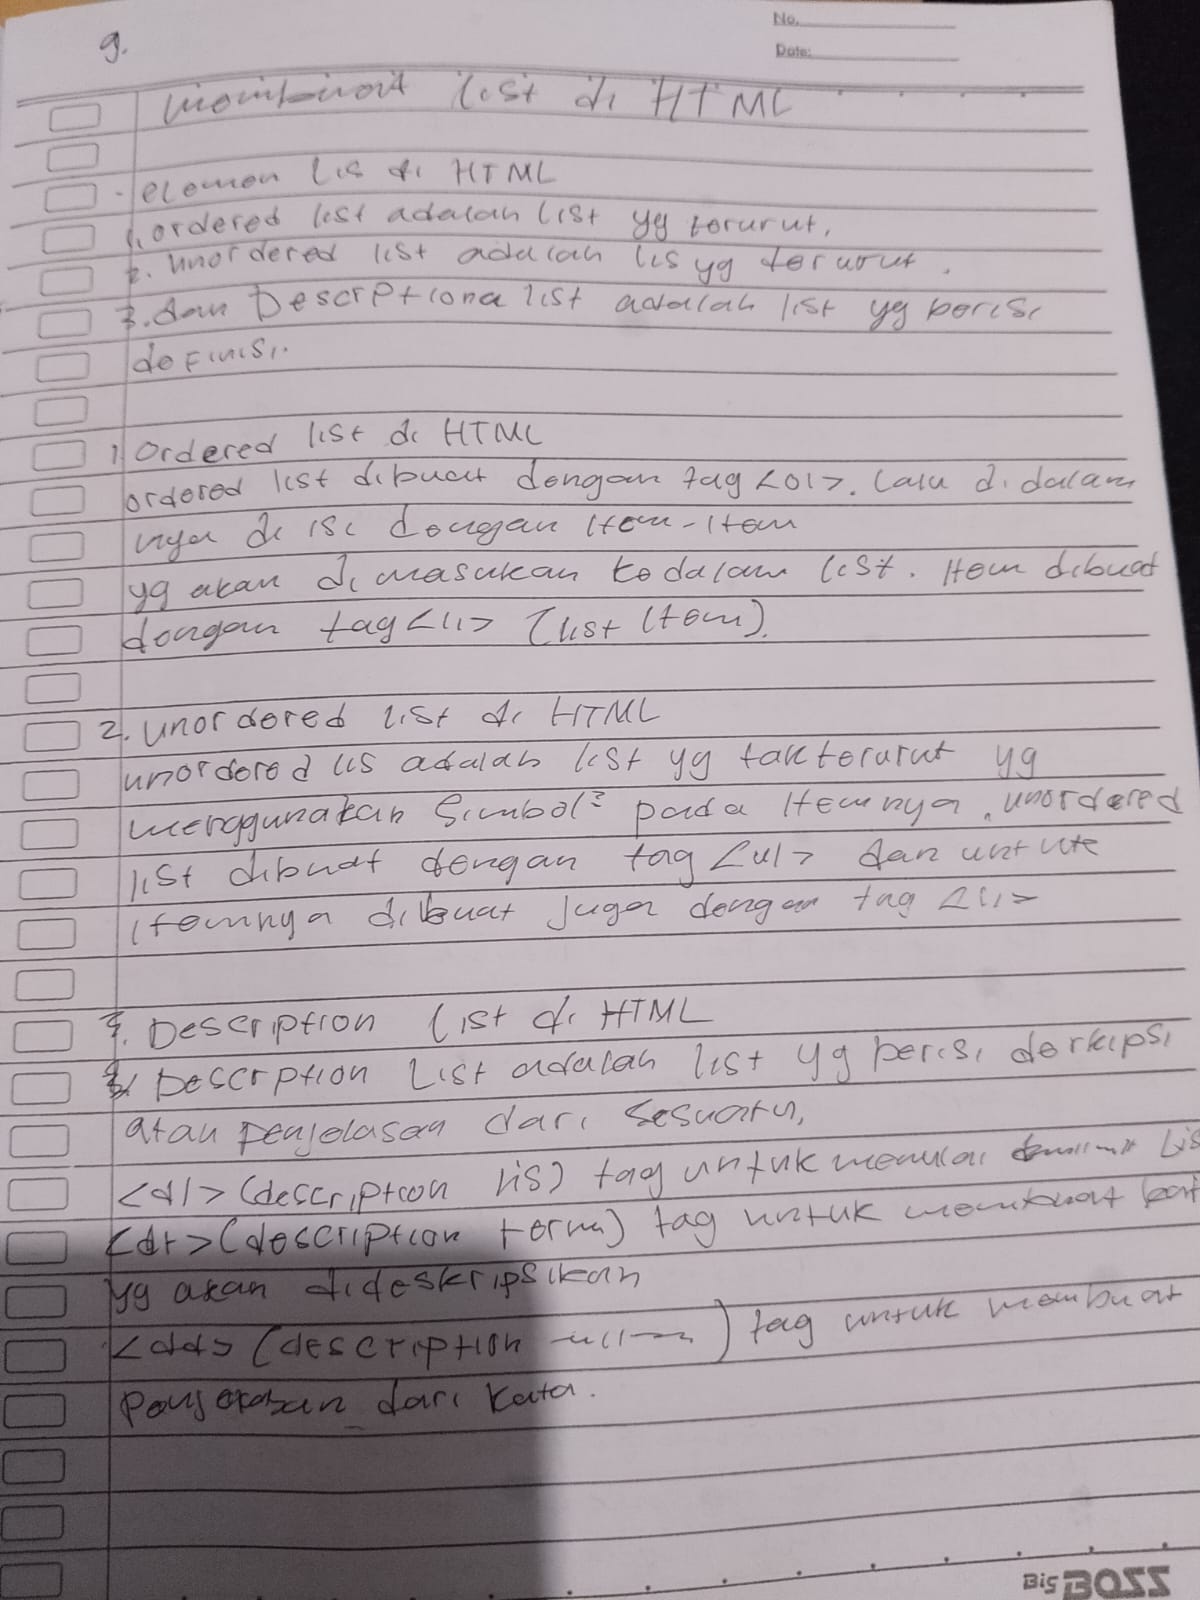 9.
No.
Date:
membuat list di HTML
- elemen lis di HTML
1. ordered list adalah list yg terurut,
2. unordered list adalah lis yg terurut.
3. dan Descrptiona list adalah list yg berisi
definisi.
1. Ordered list di HTML
ordered list dibuat dengan tag <ol>. Lalu didalam
nya di isi dengan item-item
yg akan di masukan kedalam list. Item dibuat
dengan tag <li> (list item).
2. unordered list di HTML
unordered lis adalah list yg tak terurut yg
menggunakan Simbol² pada Itemnya. unordered
list dibuat dengan tag <ul> dan untuk
itemnya dibuat juga dengan tag <li>
3. Description list di HTML
Descrption List adalah list yg berisi derkipsi
atau penjelasan dari sesuatu,
<dl> (description lis) tag untuk memulai Lis
<dt> (description term) tag untuk membuat kat
yg akan dideskripsikan
<dd> (description ) tag untuk membuat
Penjelasan dari Kata.
Big BOSS